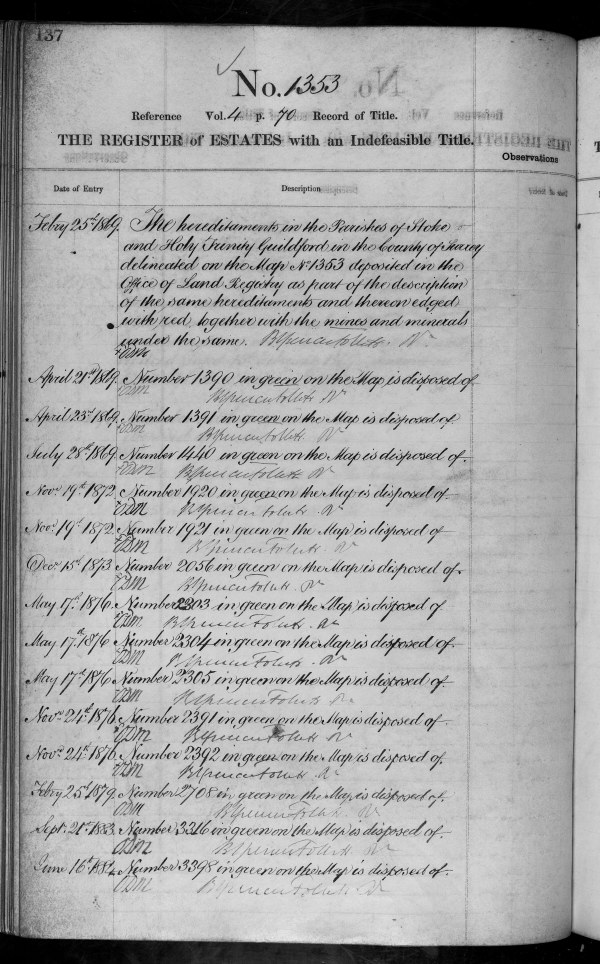 137
No. 1353
Reference Vol. 4 p. 70 Record of Title.
THE REGISTER of ESTATES with an Indefeasible Title.
Observations
Date of Entry Description
Febry 25th 1869. The hereditaments in the Parishes of Stoke
and Holy Trinity Guildford in the County of Surrey
delineated on the Map No 1353 deposited in the
Office of Land Registry as part of the description
of the same hereditaments and thereon edged
with red, together with the mines and minerals
under the same. Rr
April 21st 1869. Number 1390 in green on the Map is disposed of
Rr
April 23d 1869. Number 1391 in green on the Map is disposed of
Rr
July 28th 1869. Number 1440 in green on the Map is disposed of.
Rr
Novr 19th 1872. Number 1920 in green on the Map is disposed of
EDM Rr
Novr 19th 1872. Number 1921 in green on the Map is disposed of
EDM Rr
Decr 15th 1873 Number 2056 in green on the Map is disposed of.
EDM Rr
May 17th 1876. Number 2303 in green on the Map is disposed of
EDM Rr
May 17th 1876 Number 2304 in green on the Map is disposed of.
EDM Rr
May 17th 1876 Number 2305 in green on the Map is disposed of.
EDM Rr
Novr 24th 1876. Number 2391 in green on the Map is disposed of.
EDM Rr
Novr 24th 1876. Number 2392 in green on the Map is disposed of.
EDM Rr
Febry 25th 1879. Number 2708 in green on the Map is disposed of.
EDM Rr
Septr 21st 1883. Number 3316 in green on the Map is disposed of.
EDM Rr
June 16th 1884. Number 3398 in green on the Map is disposed of.
EDM Rr